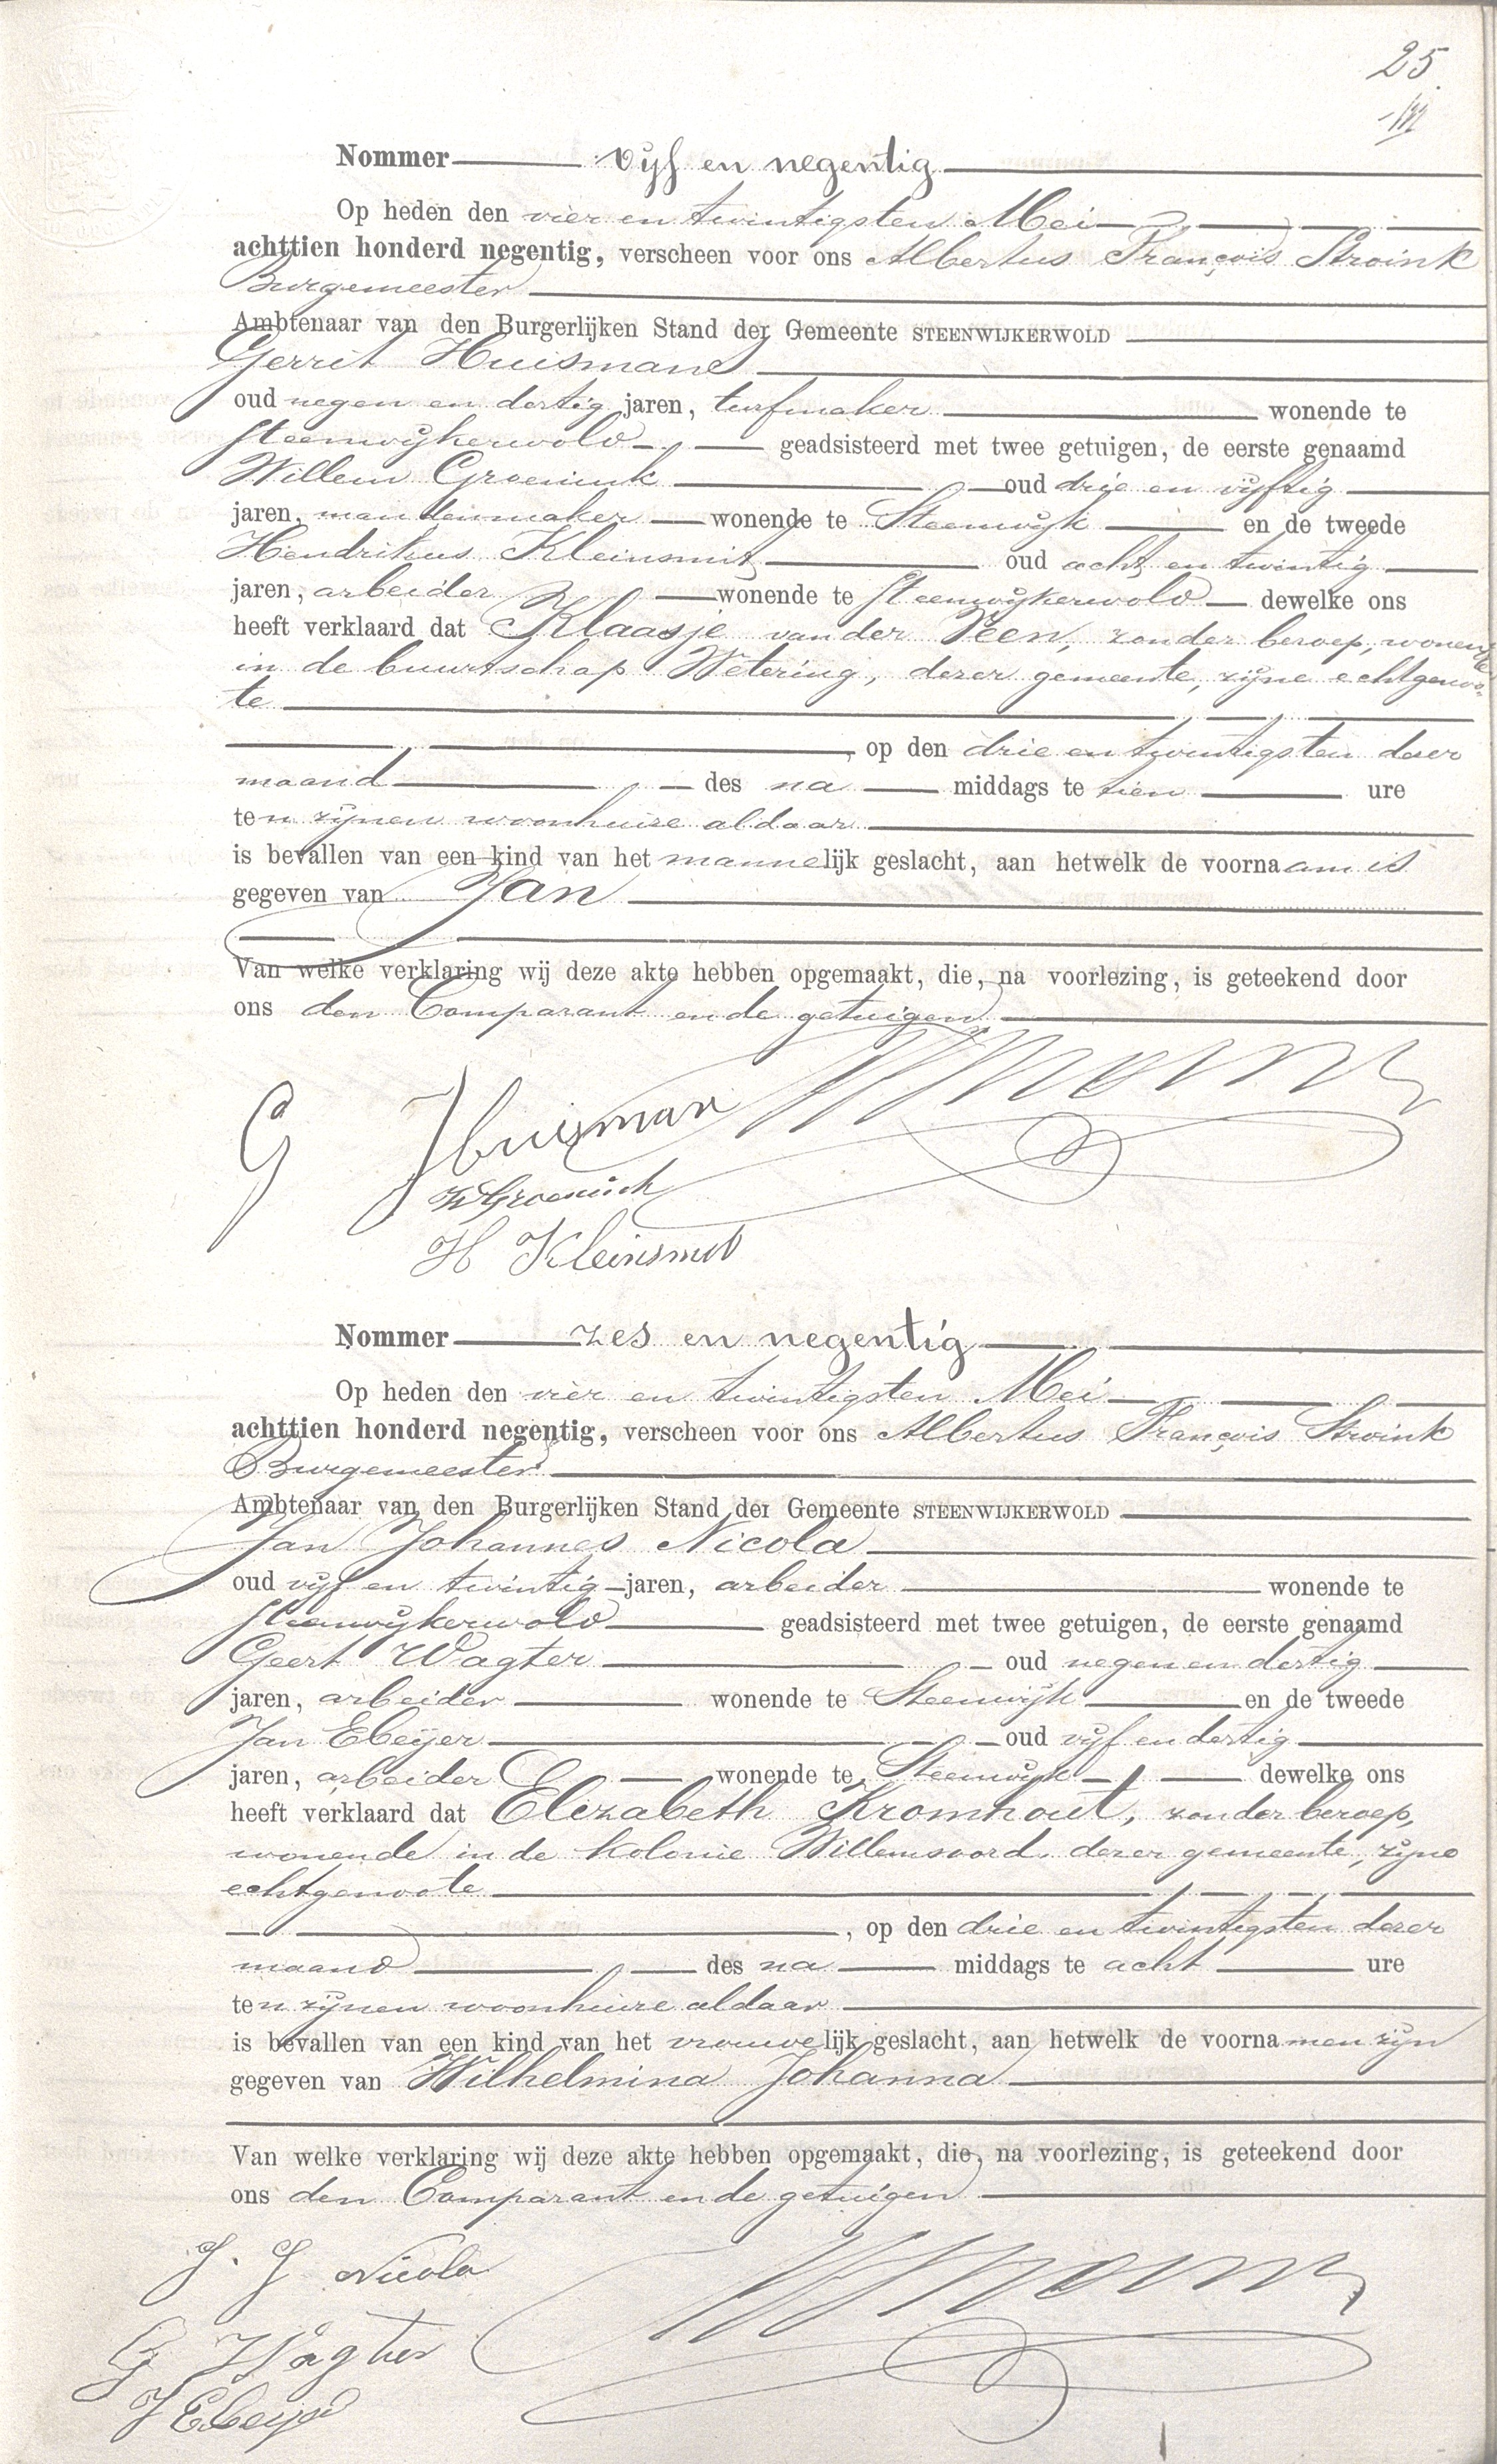 25
Nommer vijf en negentig
Op heden den vier en twintigsten Mei
achttien honderd negentig, verscheen voor ons Albertus François Stroink
Burgemeester
Ambtenaar van den Burgerlijken Stand der Gemeente STEENWIJKERWOLD
Gerrit Huisman
oud negen en dertig jaren, turfmaker wonende te
Steenwijkerwold geadsisteerd met twee getuigen, de eerste genaamd
Willem Groenink oud drie en vijftig
jaren, mandenmaker wonende te Steenwijk en de tweede
Hendrikus Kleinsmit oud acht en twintig
jaren, arbeider wonende te Steenwijkerwold dewelke ons
heeft verklaard dat Klaasje van der Veen, zonder beroep, wonende
in de buurtschap Wetering, dezer gemeente, zijne echtgenoo-
te
, op den drie en twintigsten dezer
maand des na middags te tien ure
ten zijnen woonhuize aldaar
is bevallen van een kind van het mannelijk geslacht, aan hetwelk de voornaam is
gegeven van Jan
Van welke verklaring wij deze akte hebben opgemaakt, die, na voorlezing, is geteekend door
ons den Comparant en de getuigen
G Huisman
W Groenink
H Kleinsmit
Nommer zes en negentig
Op heden den vier en twintigsten Mei
achttien honderd negentig, verscheen voor ons Albertus François Stroink
Burgemeester
Ambtenaar van den Burgerlijken Stand der Gemeente STEENWIJKERWOLD
Jan Johannes Nicola
oud vijf en twintig jaren, arbeider wonende te
Steenwijkerwold geadsisteerd met twee getuigen, de eerste genaamd
Geert Wagter oud negen en dertig
jaren, arbeider wonende te Steenwijk en de tweede
Jan Ebeijer oud vijf en dertig
jaren, arbeider wonende te Steenwijk dewelke ons
heeft verklaard dat Elizabeth Kromhout, zonder beroep,
wonende in de kolonie Willemsoord, dezer gemeente, zijne
echtgenoote
, op den drie en twintigsten dezer
maand des na middags te acht ure
ten zijnen woonhuize aldaar
is bevallen van een kind van het vrouwelijk geslacht, aan hetwelk de voornamen zijn
gegeven van Wilhelmina Johanna
Van welke verklaring wij deze akte hebben opgemaakt, die, na voorlezing, is geteekend door
ons den Comparant en de getuigen
J. J Nicola
G Wagter
J Ebeijer